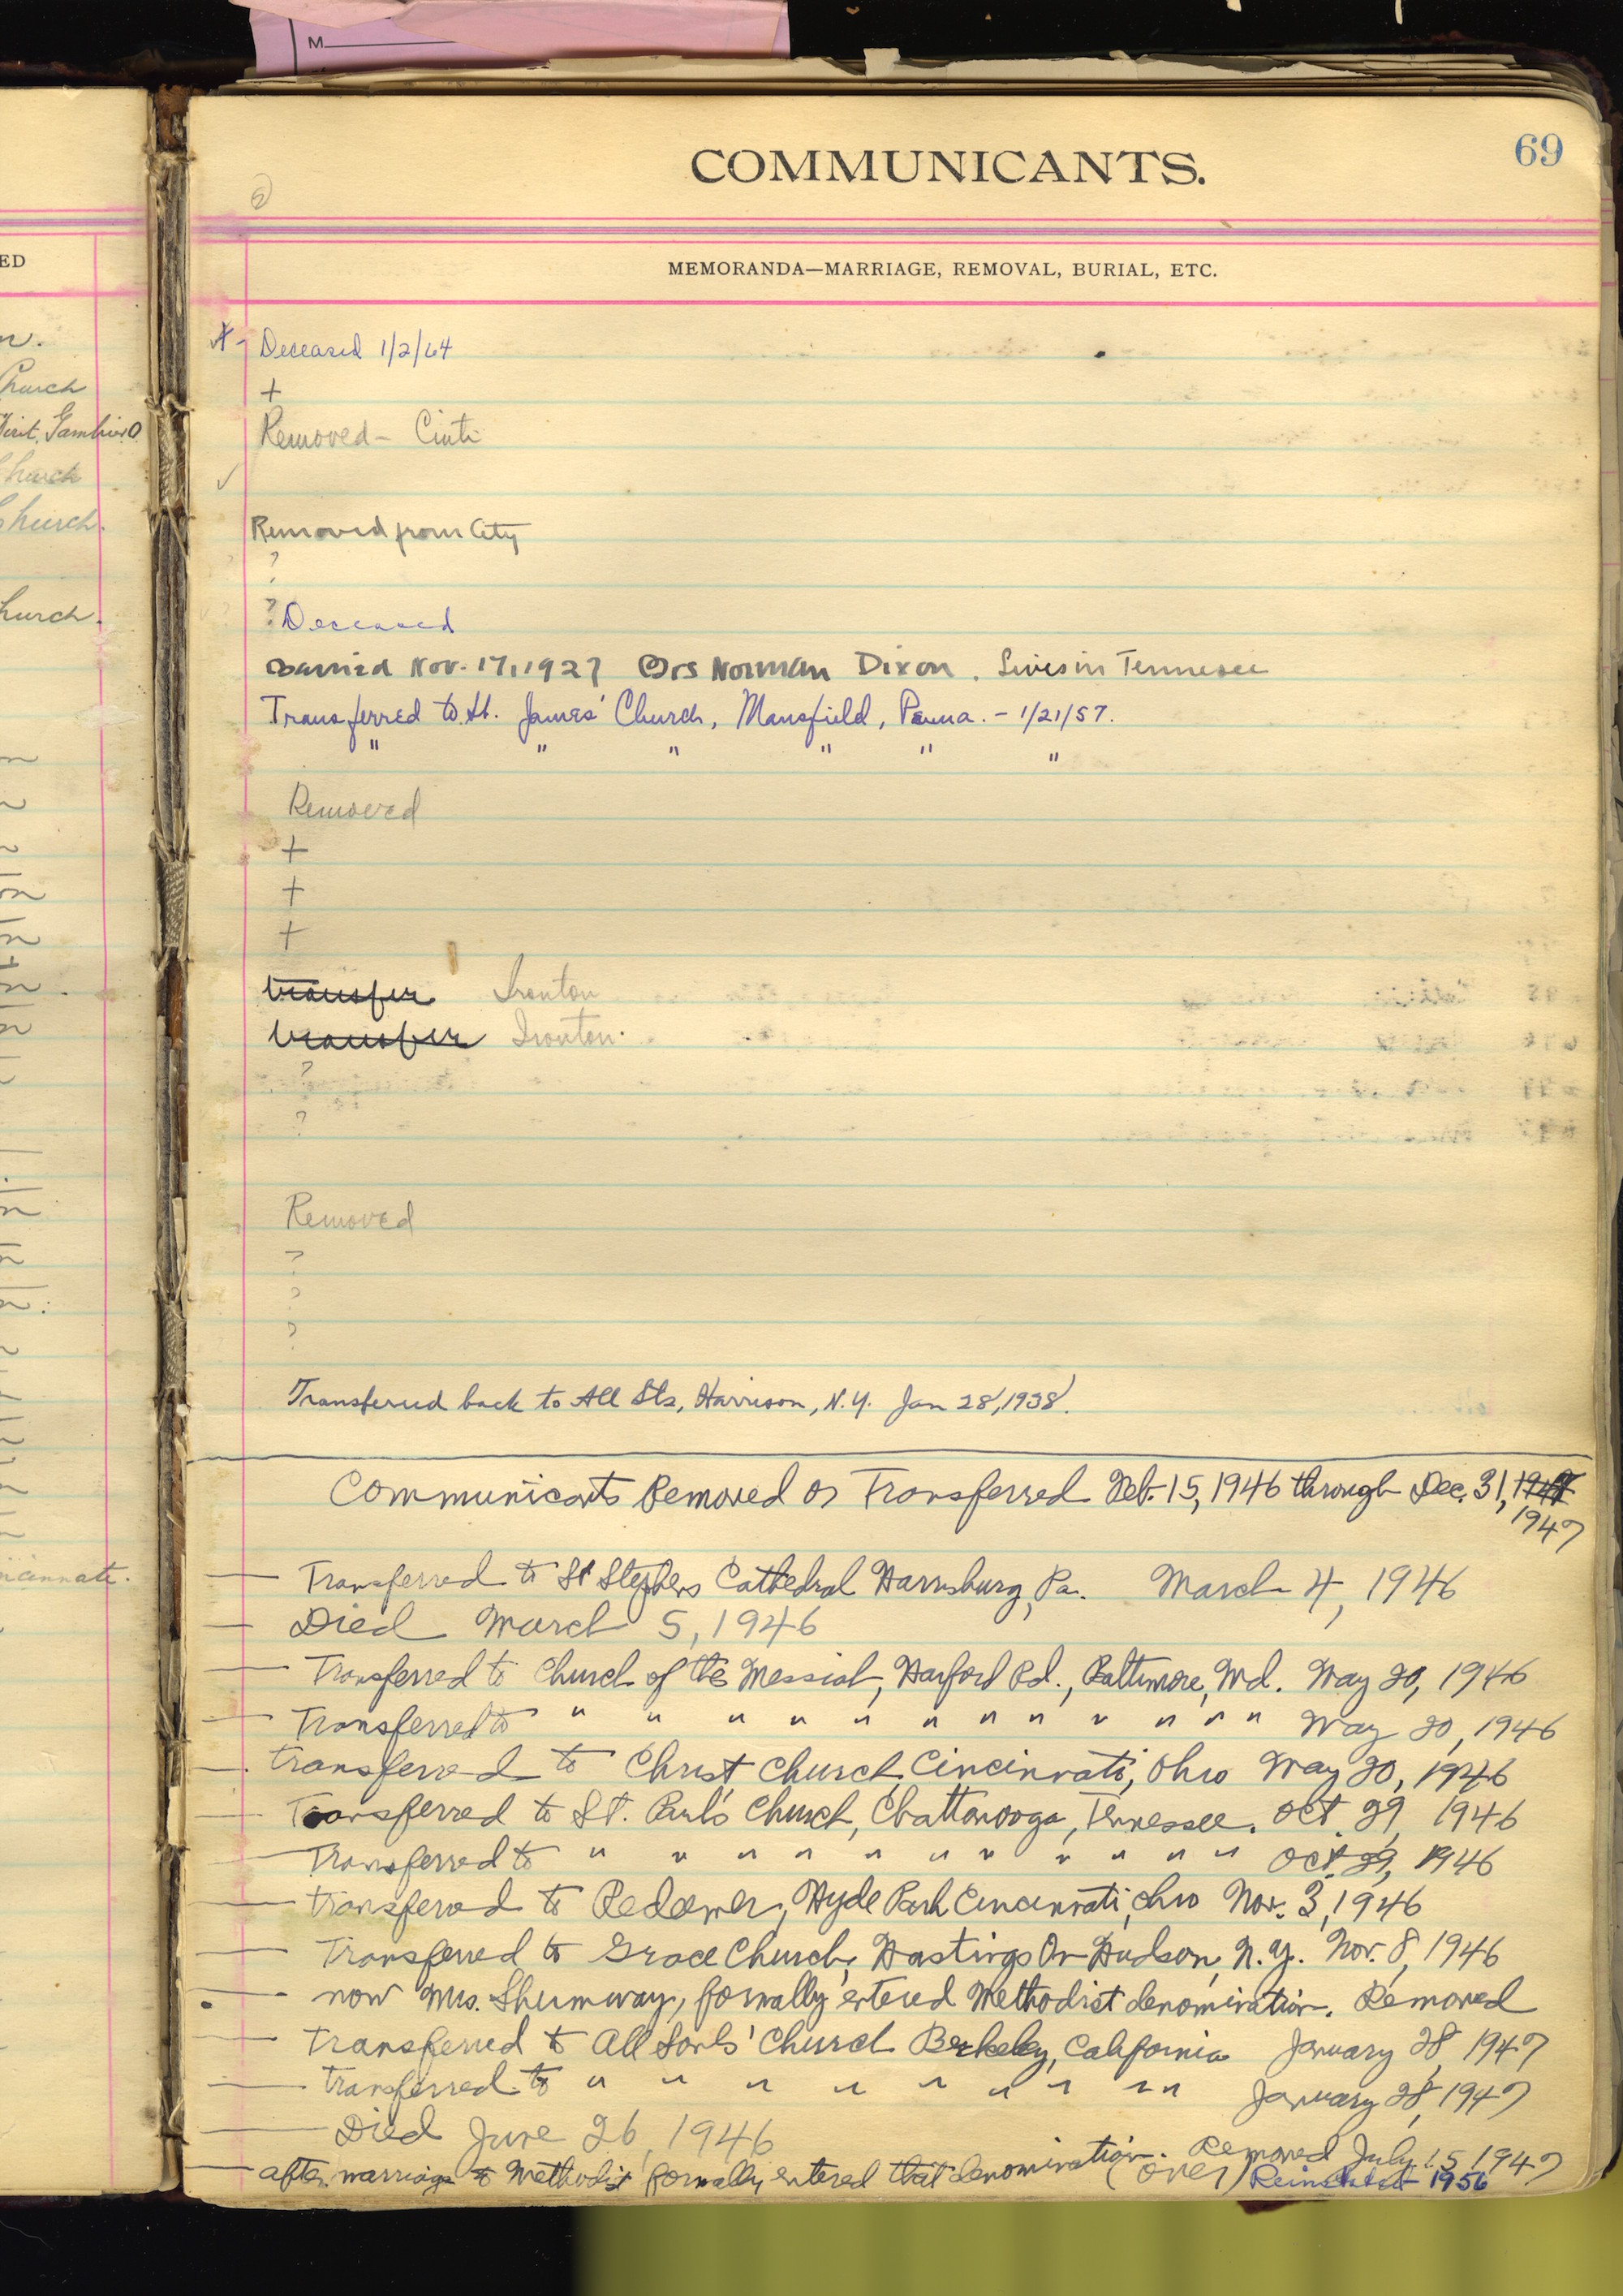 M
COMMUNICANTS.
69
MEMORANDA—MARRIAGE, REMOVAL, BURIAL, ETC.
ED
Church
Gambier O
Church
Church.
hurch.
ncinnati.
Deceased 1/2/64
+
Removed - Cinti
✓
Removed from City
?
?
Deceased
Married Nov. 17, 1927 Mrs Norman Dixon. Lives in Tennesee
Transferred to St. James' Church, Mansfield, Penna. - 1/21/57.
" " " " " "
Removed
+
+
+
transfer Ironton
transfer Ironton.
?
?
Removed
?
?
?
Transferred back to All Sts, Harrison, N.Y. Jan 28, 1938.
Communicants Removed or Transferred Feb. 15, 1946 through Dec. 31,
1947
— Transferred to St Stephens Cathedral Harrisburg, Pa. March 4, 1946
— Died March 5, 1946
— Transferred to Church of the Messiah, Harford Rd., Baltimore, Md. May 20, 1946
— Transferred to " " " " " " " " " " " " May 20, 1946
— transferred to Christ Church, Cincinnati, Ohio May 20, 1946
— Transferred to St. Paul's Church, Chattanooga, Tennessee. Oct. 29, 1946
— Transferred to " " " " " " " " " " " Oct. 29, 1946
— transferred to Redeemer, Hyde Park Cincinnati, Ohio Nov. 3, 1946
— Transferred to Grace Church, Hastings On Hudson, N.Y. Nov. 8, 1946
— now Mrs. Shumway, formally entered Methodist denomination. Removed
— transferred to All Souls' Church Berkeley, California January 28, 1947
— transferred to " " " " " " " " " January 28, 1947
— Died June 26, 1946
— after marriage to Methodist formally entered that denomination. Removed July 15, 1947
(over) Reinstated - 1956